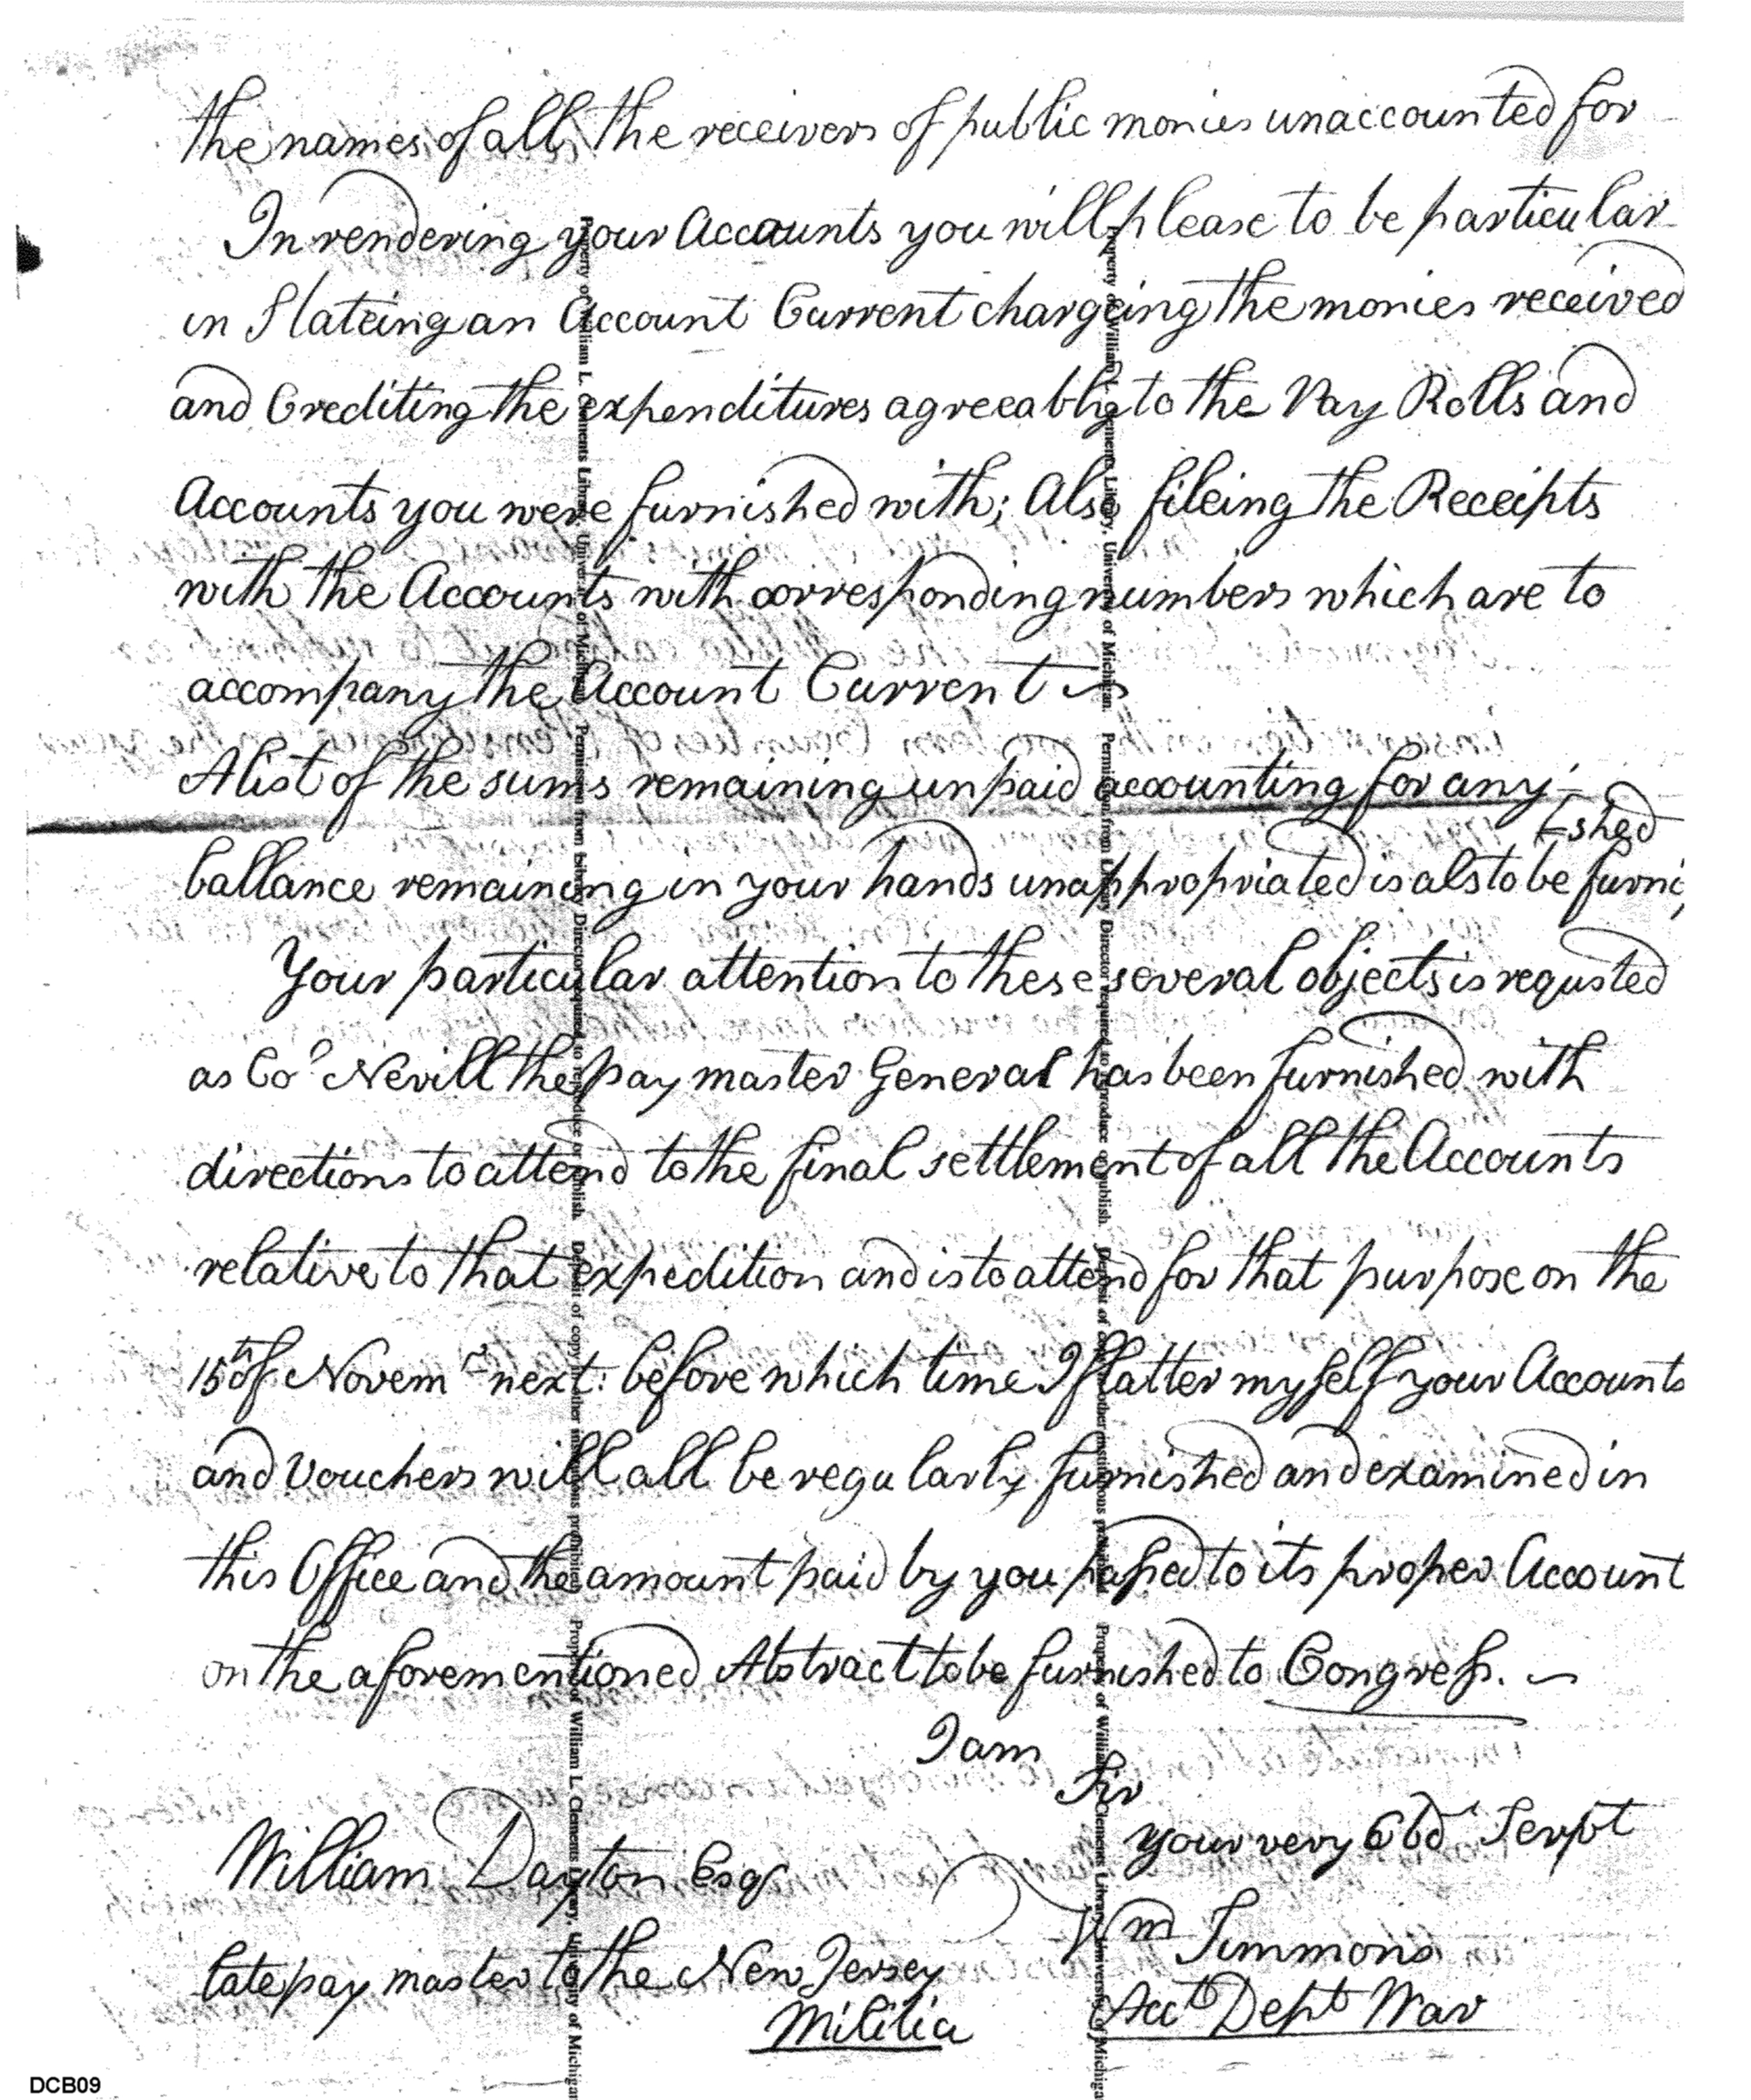 the names of all the receivers of public monies unaccounted for
In rendering your Accounts you will please to be particular
in Stateing an Account Current chargeing the monies received
and Crediting the expenditures agreeably to the Pay Rolls and
Accounts you were furnished with; Also fileing the Receipts
with the Accounts with corresponding numbers which are to
accompany the Account Current
A list of the sums remaining unpaid accounting for any
ballance remaining in your hands unappropriated is also to be furni
shed
Your particular attention to these several objects is requsted
as Col Nevill the pay master General has been furnished with
directions to attend to the final settlement of all the Accounts
relative to that expedition and is to attend for that purpose on the
15th of Novemr next: before which time I flatter myself your Accounts
and Vouchers will all be regularly furnished and examined in
this Office and the amount paid by you passed to its proper Account
on the aforementioned Abstract to be furnished to Congress. —
I am
Sir
your very Obd Servt
William Dayton Esqr
Wm Simmons
late pay master to the New Jersey
Militia
Acct Dept War
Property of William L. Clements Library, University of Michigan. Permission from Library Director required to reproduce or publish. Deposit of copy other institutions prohibited. Property of William L. Clements Library, University of Michigan
Property of William L. Clements Library, University of Michigan. Permission from Library Director required to reproduce or publish. Deposit of copy other institutions prohibited. Property of William L. Clements Library, University of Michigan
DCB09